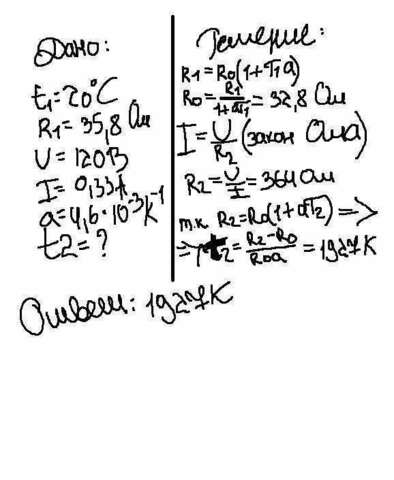 Дано:
t₁=20°C
R₁=35,8 Ом
U=120В
I=0,33А
a=4,6·10⁻³K⁻¹
t2=?
Решение:
R₁=R₀(1+T₁a)
R₀=R₁/(1+aT₁)=32,8 Ом
I=U/R₂ (закон Ома)
R₂=U/I=364 Ом
т.к. R₂=R₀(1+aT₂) =>
=> t₂=(R₂-R₀)/(R₀a)=1927K
Ответ: 1927K